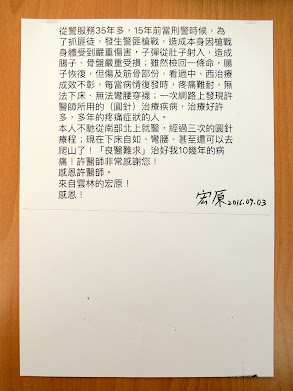 從警服務35年多，15年前當刑警時候，為
了抓匪徒，發生警匪槍戰，造成本身因槍戰
身體受到嚴重傷害，子彈從肚子射入，造成
腸子、骨盤嚴重受損；雖然檢回一條命，腸
子恢復，但傷及筋骨部份，看過中、西治療
成效不彰，每當病情復發時，疼痛難耐，無
法下床、無法彎腰穿襪；一次網路上發現許
醫師所用的（圓針）治療疾病，治療好許
多，多年的疼痛症狀的人。
本人不馳從南部北上就醫，經過三次的圓針
療程；現在下床自如、彎腰、甚至還可以去
爬山了！「良醫難求」治好我10幾年的病
痛！許醫師非常感謝您！
感恩許醫師。
來自雲林的宏原！
感恩！
宏原 2016.09.03